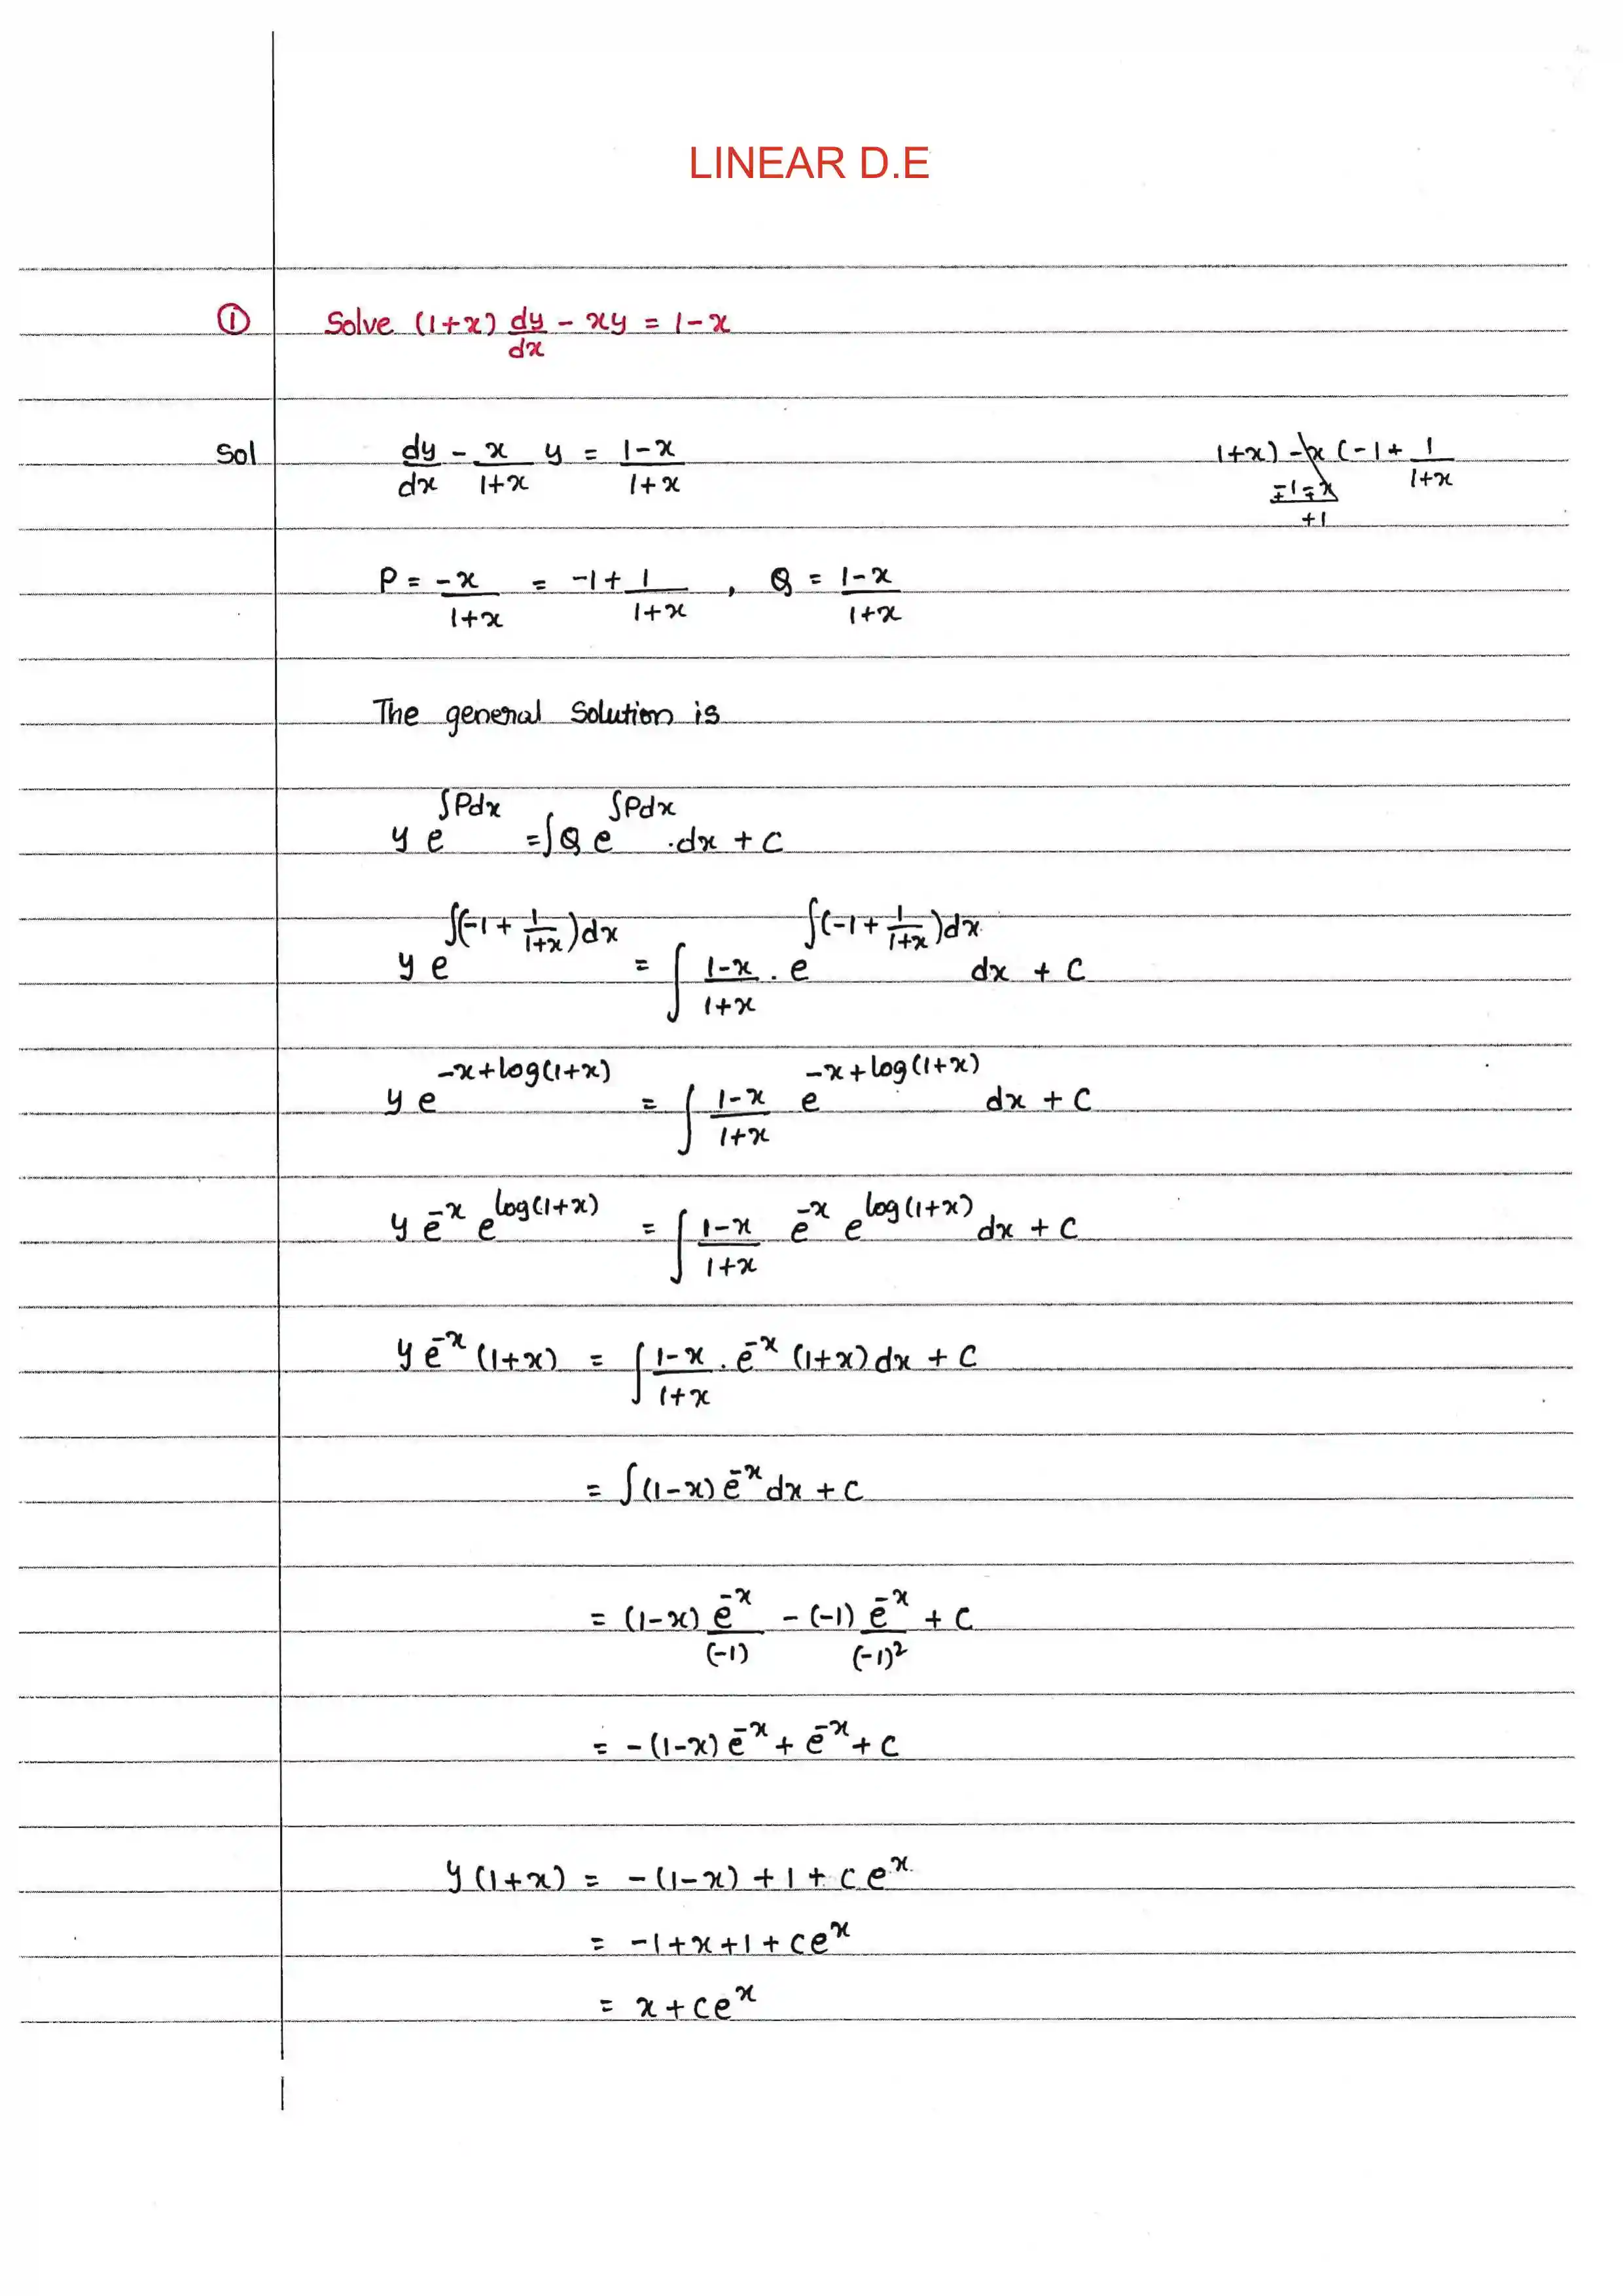 LINEAR D.E
① Solve (1+x) dy/dx - xy = 1-x
Sol dy/dx - x/(1+x) y = (1-x)/(1+x)
1+x) -x (-1 + 1/(1+x)
∓1∓x
+1
P = -x/(1+x) = -1 + 1/(1+x) , Q = (1-x)/(1+x)
The general solution is
y e^(∫Pdx) = ∫Q e^(∫Pdx) .dx + C
y e^(∫(-1 + 1/(1+x))dx) = ∫ (1-x)/(1+x) . e^(∫(-1 + 1/(1+x))dx) dx + C
y e^(-x+log(1+x)) = ∫ (1-x)/(1+x) e^(-x+log(1+x)) dx + C
y e^(-x) e^(log(1+x)) = ∫ (1-x)/(1+x) e^(-x) e^(log(1+x)) dx + C
y e^(-x) (1+x) = ∫ (1-x)/(1+x) . e^(-x) (1+x) dx + C
= ∫(1-x) e^(-x) dx + C
= (1-x) e^(-x)/(-1) - (-1) e^(-x)/(-1)² + C
= -(1-x) e^(-x) + e^(-x) + C
y (1+x) = -(1-x) + 1 + C e^x
= -1+x+1+Ce^x
= x+Ce^x